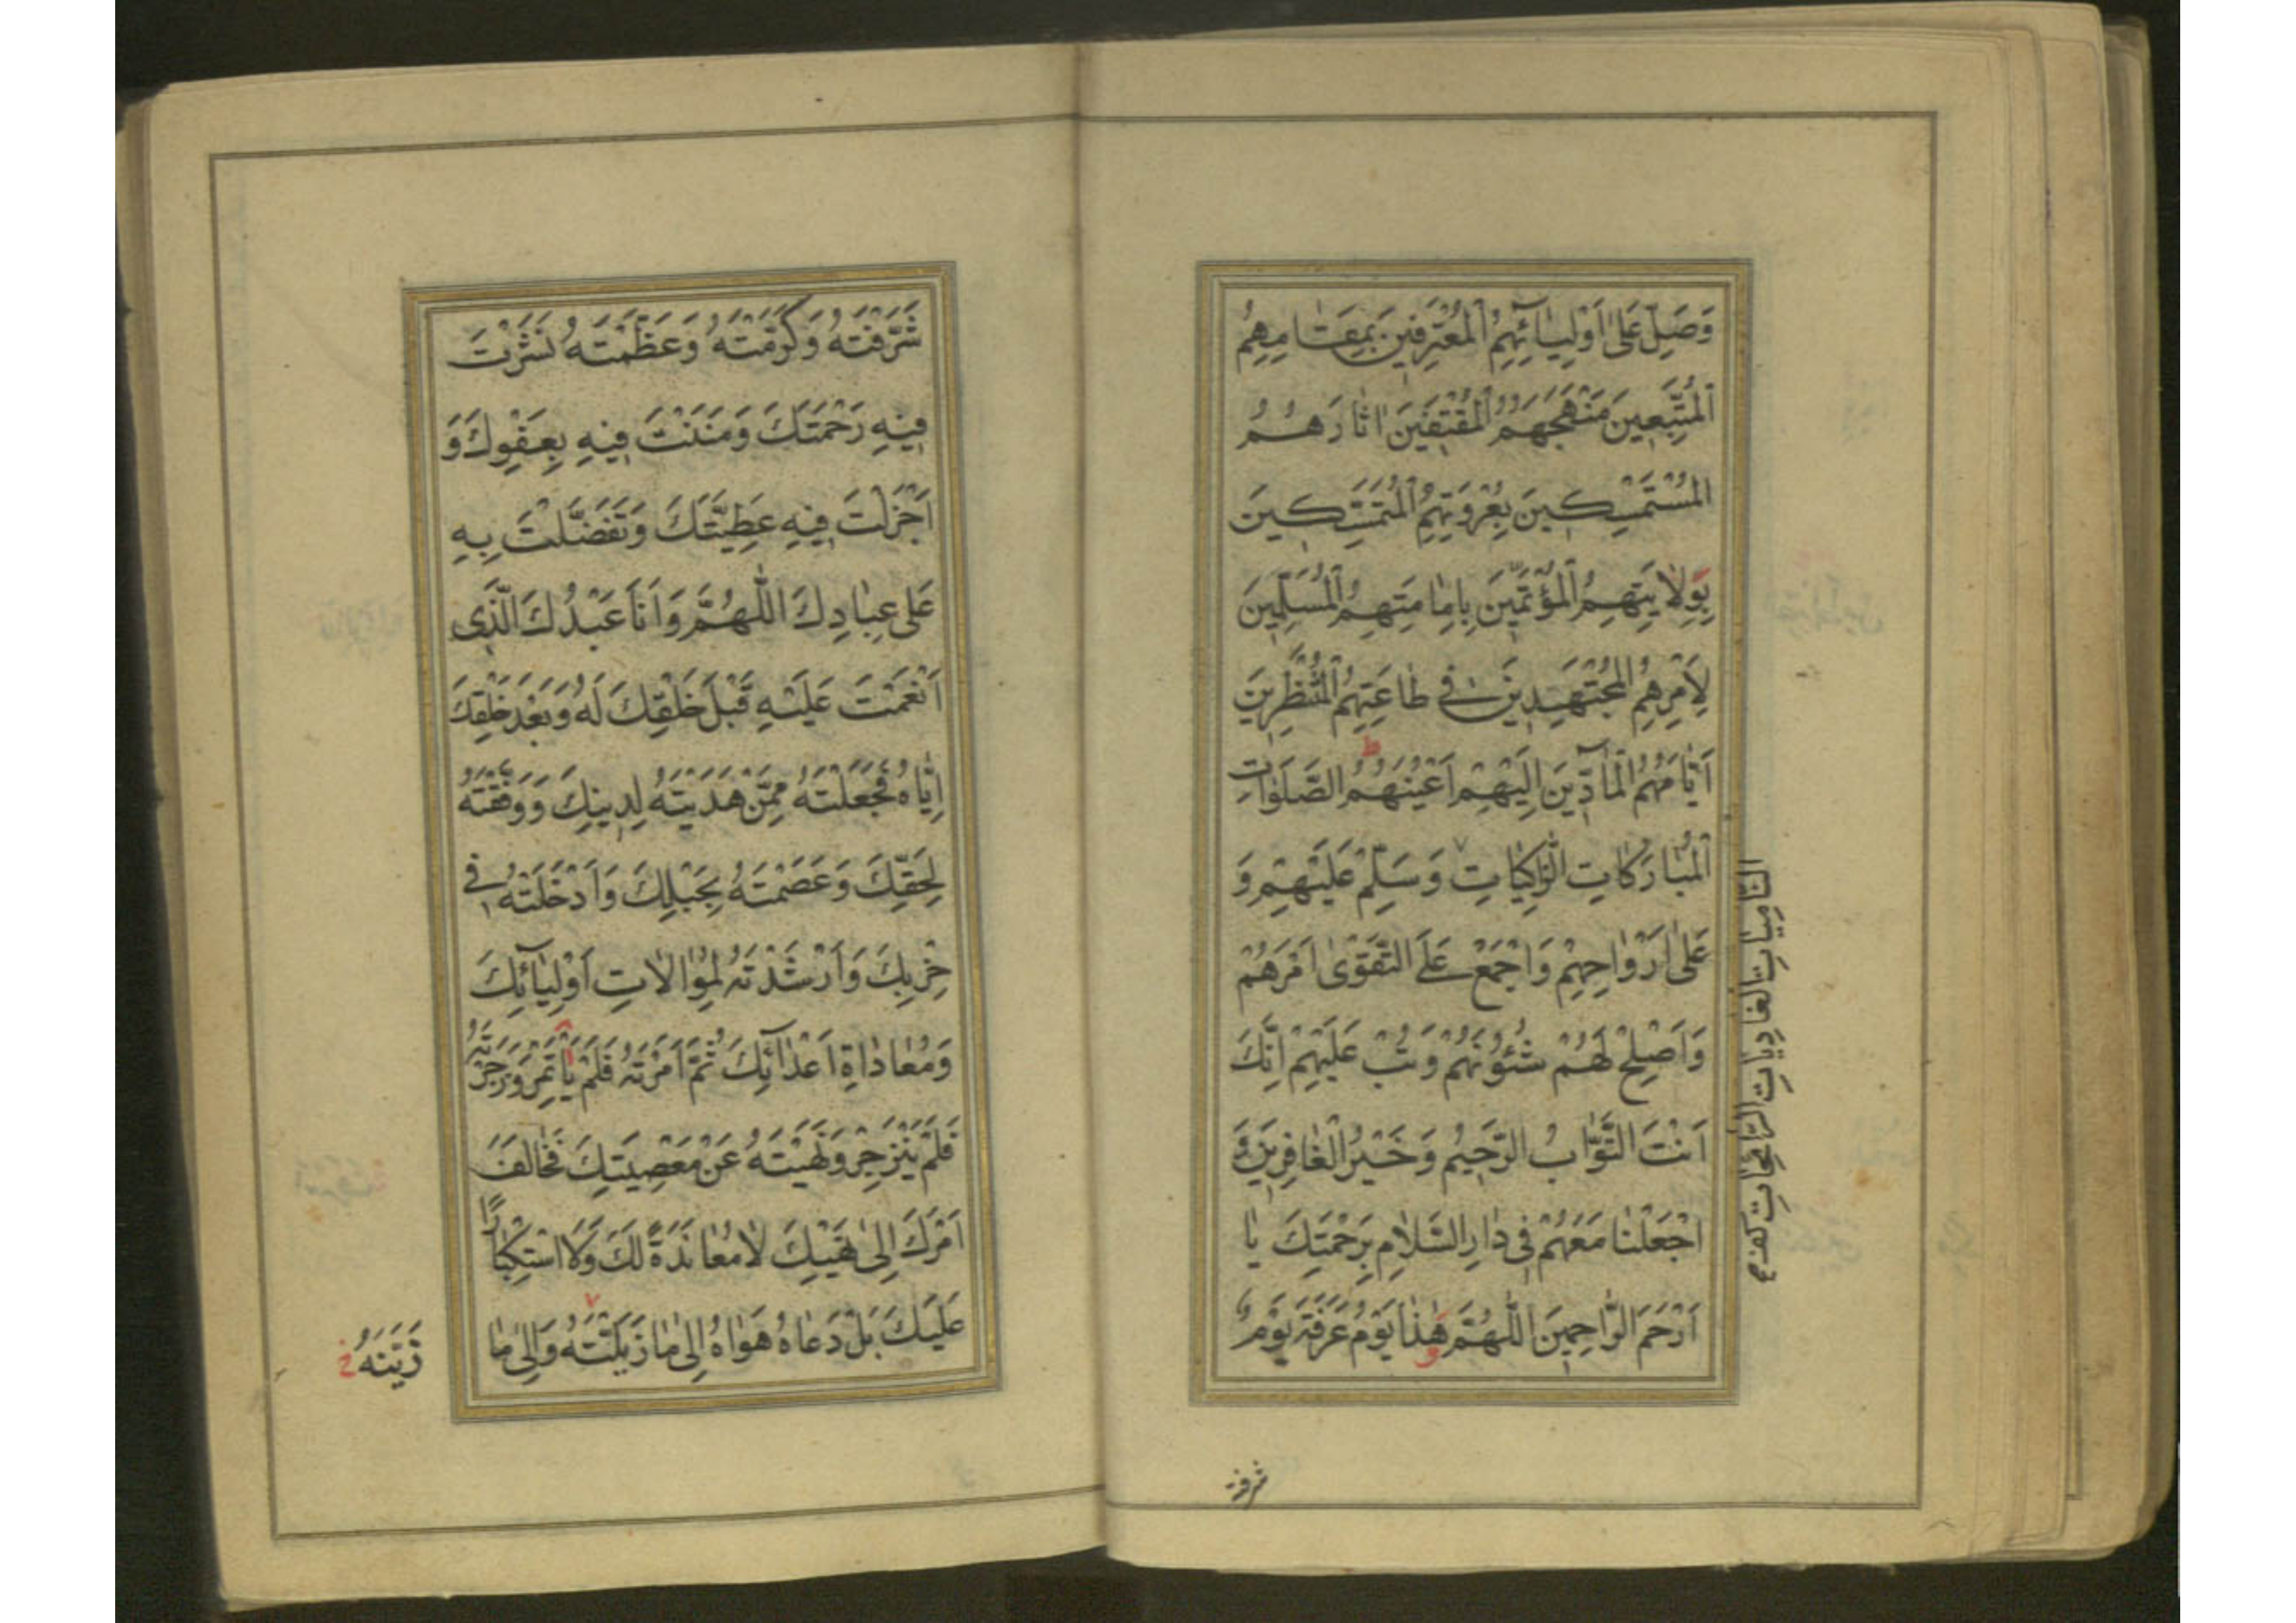 وَصَلِّ عَلٰى اَوْلِيٰائِهِمُ الْمُعْتَرِفِينَ بِمَقٰامِهِمُ
الْمُتَّبِعِينَ مَنْهَجَهُمُ الْمُقْتَفِينَ اٰثٰارَهُمُ
الْمُسْتَمْسِكِينَ بِعُرْوَتِهِمُ الْمُتَمَسِّكِينَ
بِوِلٰايَتِهِمُ الْمُؤْتَمِّينَ بِاِمٰامَتِهِمُ الْمُسَلِّمِينَ
لِاَمْرِهِمُ الْمُجْتَهِدِينَ فِي طٰاعَتِهِمُ الْمُنْتَظِرِينَ
اَيّٰامَهُمُ الْمٰادِّينَ اِلَيْهِمْ اَعْيُنَهُمُ الصَّلَوٰاتِ
الْمُبٰارَكٰاتِ الزّٰاكِيٰاتِ وَسَلِّمْ عَلَيْهِمْ وَ
عَلٰى اَرْوٰاحِهِمْ وَاجْمَعْ عَلَى التَّقْوٰى اَمْرَهُمْ
وَاَصْلِحْ لَهُمْ شُئُونَهُمْ وَتُبْ عَلَيْهِمْ اِنَّكَ
اَنْتَ التَّوّٰابُ الرَّحِيمُ وَخَيْرُ الْغٰافِرِينَ وَ
اجْعَلْنٰا مَعَهُمْ فِي دٰارِ السَّلٰامِ بِرَحْمَتِكَ يٰا
اَرْحَمَ الرّٰاحِمِينَ اَللّٰهُمَّ هٰذٰا يَوْمُ عَرَفَةَ يَوْمٌ
النّٰامِيٰاتِ الْغٰادِيٰاتِ الرّٰائِحٰاتِ
شرفته
شَرَّفْتَهُ وَكَرَّمْتَهُ وَعَظَّمْتَهُ نَشَرْتَ
فِيهِ رَحْمَتَكَ وَمَنَنْتَ فِيهِ بِعَفْوِكَ وَ
اَجْزَلْتَ فِيهِ عَطِيَّتَكَ وَتَفَضَّلْتَ بِهِ
عَلٰى عِبٰادِكَ اَللّٰهُمَّ وَاَنَا عَبْدُكَ الَّذِي
اَنْعَمْتَ عَلَيْهِ قَبْلَ خَلْقِكَ لَهُ وَبَعْدَ خَلْقِكَ
اِيّٰاهُ فَجَعَلْتَهُ مِمَّنْ هَدَيْتَهُ لِدِينِكَ وَوَفَّقْتَهُ
لِحَقِّكَ وَعَصَمْتَهُ بِحَبْلِكَ وَاَدْخَلْتَهُ فِي
حِزْبِكَ وَاَرْشَدْتَهُ لِمُوٰالٰاتِ اَوْلِيٰائِكَ
وَمُعٰادٰاةِ اَعْدٰائِكَ ثُمَّ اَمَرْتَهُ فَلَمْ يَأْتَمِرْ وَزَجَرْتَهُ
فَلَمْ يَنْزَجِرْ وَنَهَيْتَهُ عَنْ مَعْصِيَتِكَ فَخٰالَفَ
اَمْرَكَ اِلٰى نَهْيِكَ لٰا مُعٰانَدَةً لَكَ وَلَا اسْتِكْبٰارًا
عَلَيْكَ بَلْ دَعٰاهُ هَوٰاهُ اِلٰى مٰا زَيَّلْتَهُ وَاِلٰى مٰا
زَيَّنَهُ خ